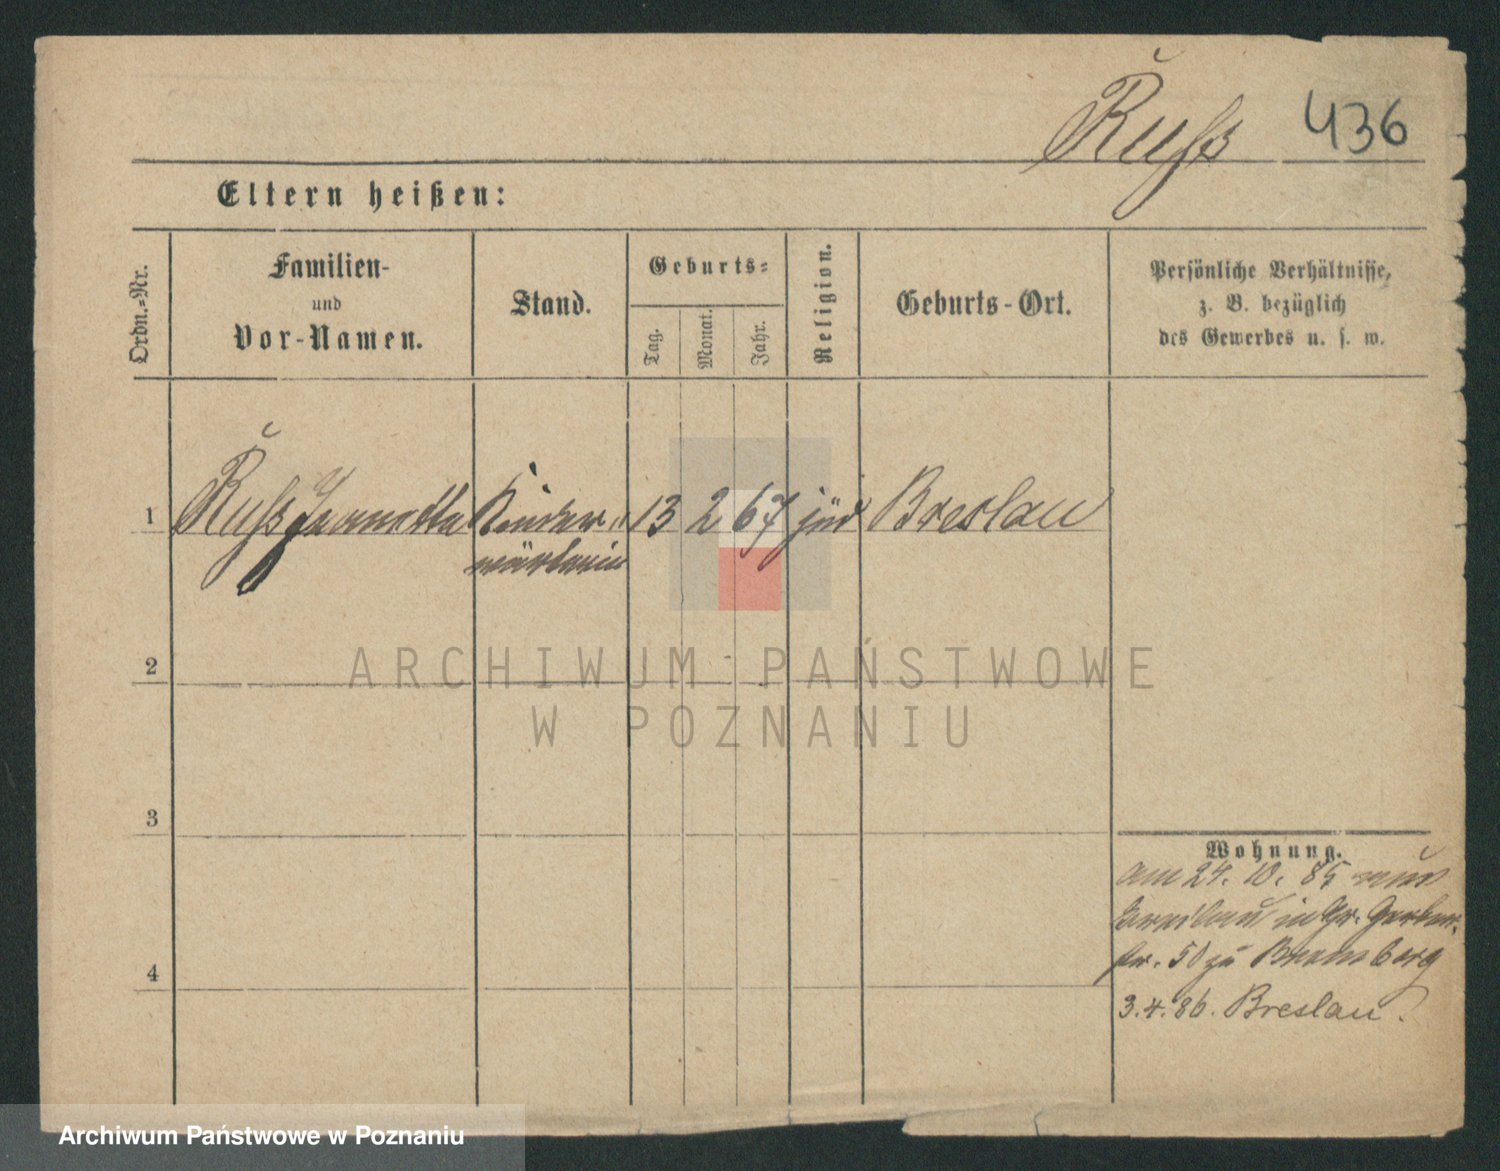 Ruß 436
Eltern heißen:
Ordn.-Nr.
Familien-
und
Vor-Namen.
Stand.
Geburts-
Tag.
Monat.
Jahr.
Religion.
Geburts-Ort.
Persönliche Verhältnisse,
z. B. bezüglich
des Gewerbes u. s. w.
1 Ruß Jeannette Kinder- 13 2 67 jüd Breslau
wärterin
2
3
4
Wohnung.
am 24. 10. 85 aus
Breslau in Gr. Gerber-
str. 50 zu
3. 4. 86. Breslau.
ARCHIWUM PAŃSTWOWE
W POZNANIU
Archiwum Państwowe w Poznaniu